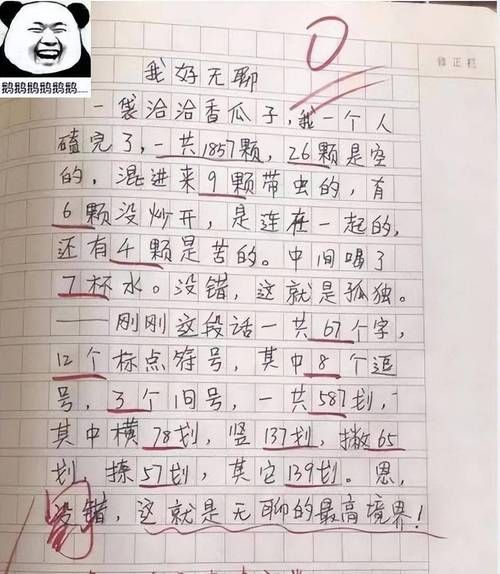 鹅鹅鹅鹅鹅鹅......
修正栏
0
我好无聊
一袋洽洽香瓜子，我一个人
磕完了，一共1857颗，26颗是空
的，混进来9颗带虫的，有
6颗没炒开，是连在一起的，
还有4颗是苦的。中间喝了
7杯水。没错，这就是孤独。
——刚刚这段话一共67个字，
12个标点符号，其中8个逗
号，3个问号，一共587划，
其中横78划，竖137划，撇65
划 捺57划，其它139划。恩，
没错，这就是无聊的最高境界！